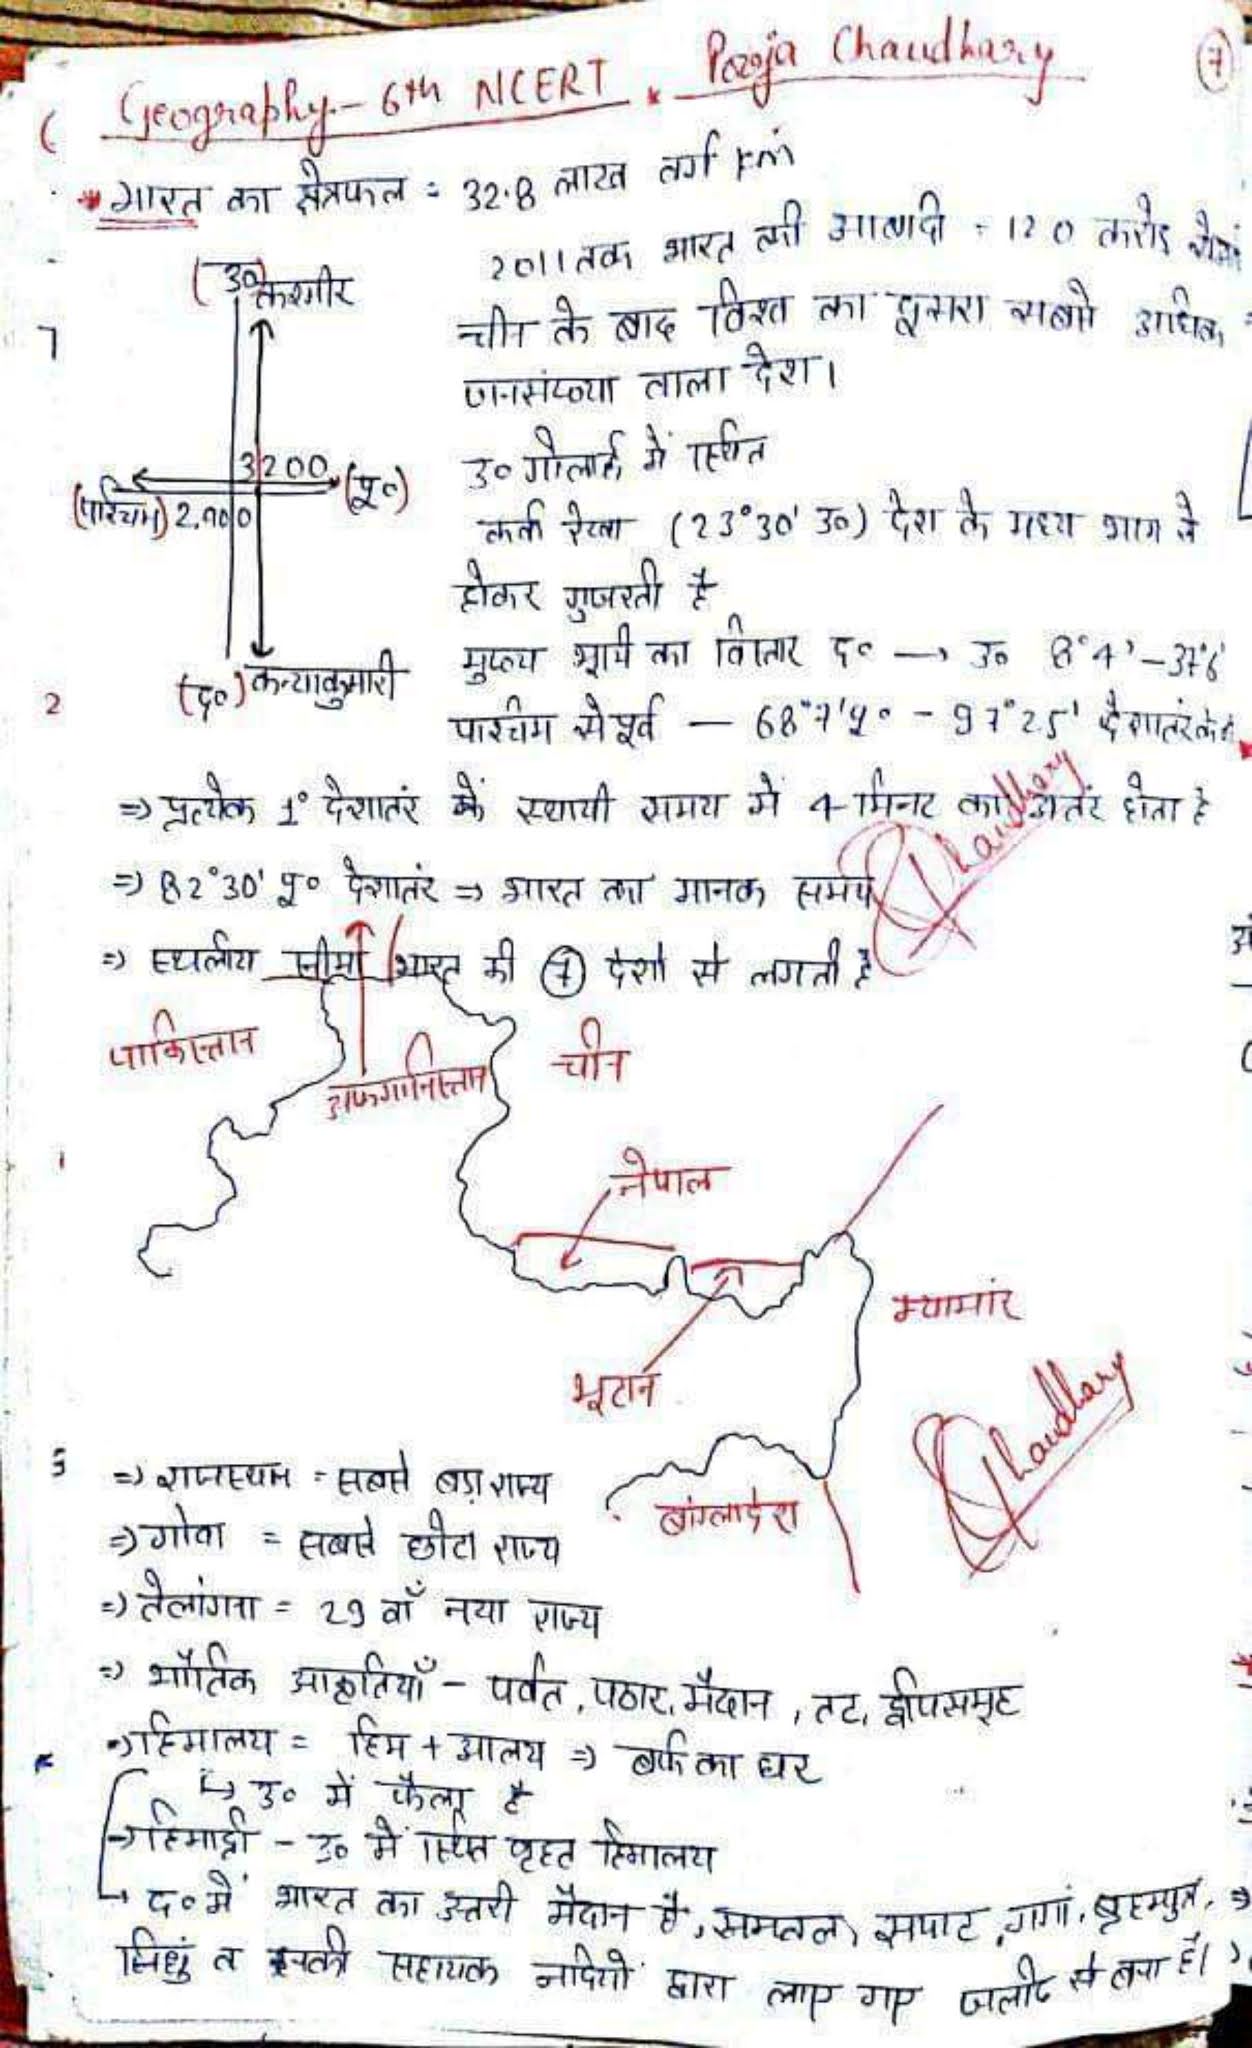 Geography - 6th NCERT × Pooja Chaudhary
7
भारत का क्षेत्रफल = 32.8 लाख वर्ग km
2011 तक भारत की आबादी - 120 करोड़
चीन के बाद विश्व का दूसरा सबसे अधिक
जनसंख्या वाला देश।
(उ०) कश्मीर
3200
(पश्चिम) 2,900 (पू०)
(द०) कन्याकुमारी
उ० गोलार्द्ध में स्थित
कर्क रेखा (23°30' उ०) देश के मध्य भाग से
होकर गुजरती है
मुख्य भूमि का विस्तार द० → उ० 8°4' - 37°6'
पश्चिम से पूर्व — 68°7' पू० - 97°25' देशातंर
⇒ प्रत्येक 1° देशातंर में स्थायी समय में 4 मिनट का अतंर होता है
⇒ 82°30' पू० देशातंर ⇒ भारत का मानक समय
Chaudhary
⇒ स्थलीय सीमा भारत की 7 देशो से लगती है
पाकिस्तान
अफगानिस्तान
चीन
नेपाल
म्यामांर
भूटान
Chaudhary
बांग्लादेश
⇒ राजस्थान = सबसे बड़ा राज्य
⇒ गोवा = सबसे छोटा राज्य
⇒ तेलांगना = 29 वाँ नया राज्य
⇒ भौतिक आकृतियाँ - पर्वत, पठार, मैदान, तट, द्वीपसमूह
→ हिमालय = हिम + आलय ⇒ बर्फ का घर
↳ उ० में फैला है
→ हिमाद्री - उ० में स्थित वृहत हिमालय
→ द० में भारत का उत्तरी मैदान है, समतल, सपाट, गगां, ब्रह्मपुत्र,
सिधुं व इनकी सहायक नदियों द्वारा लाए गए जलोढ़ से बना है।